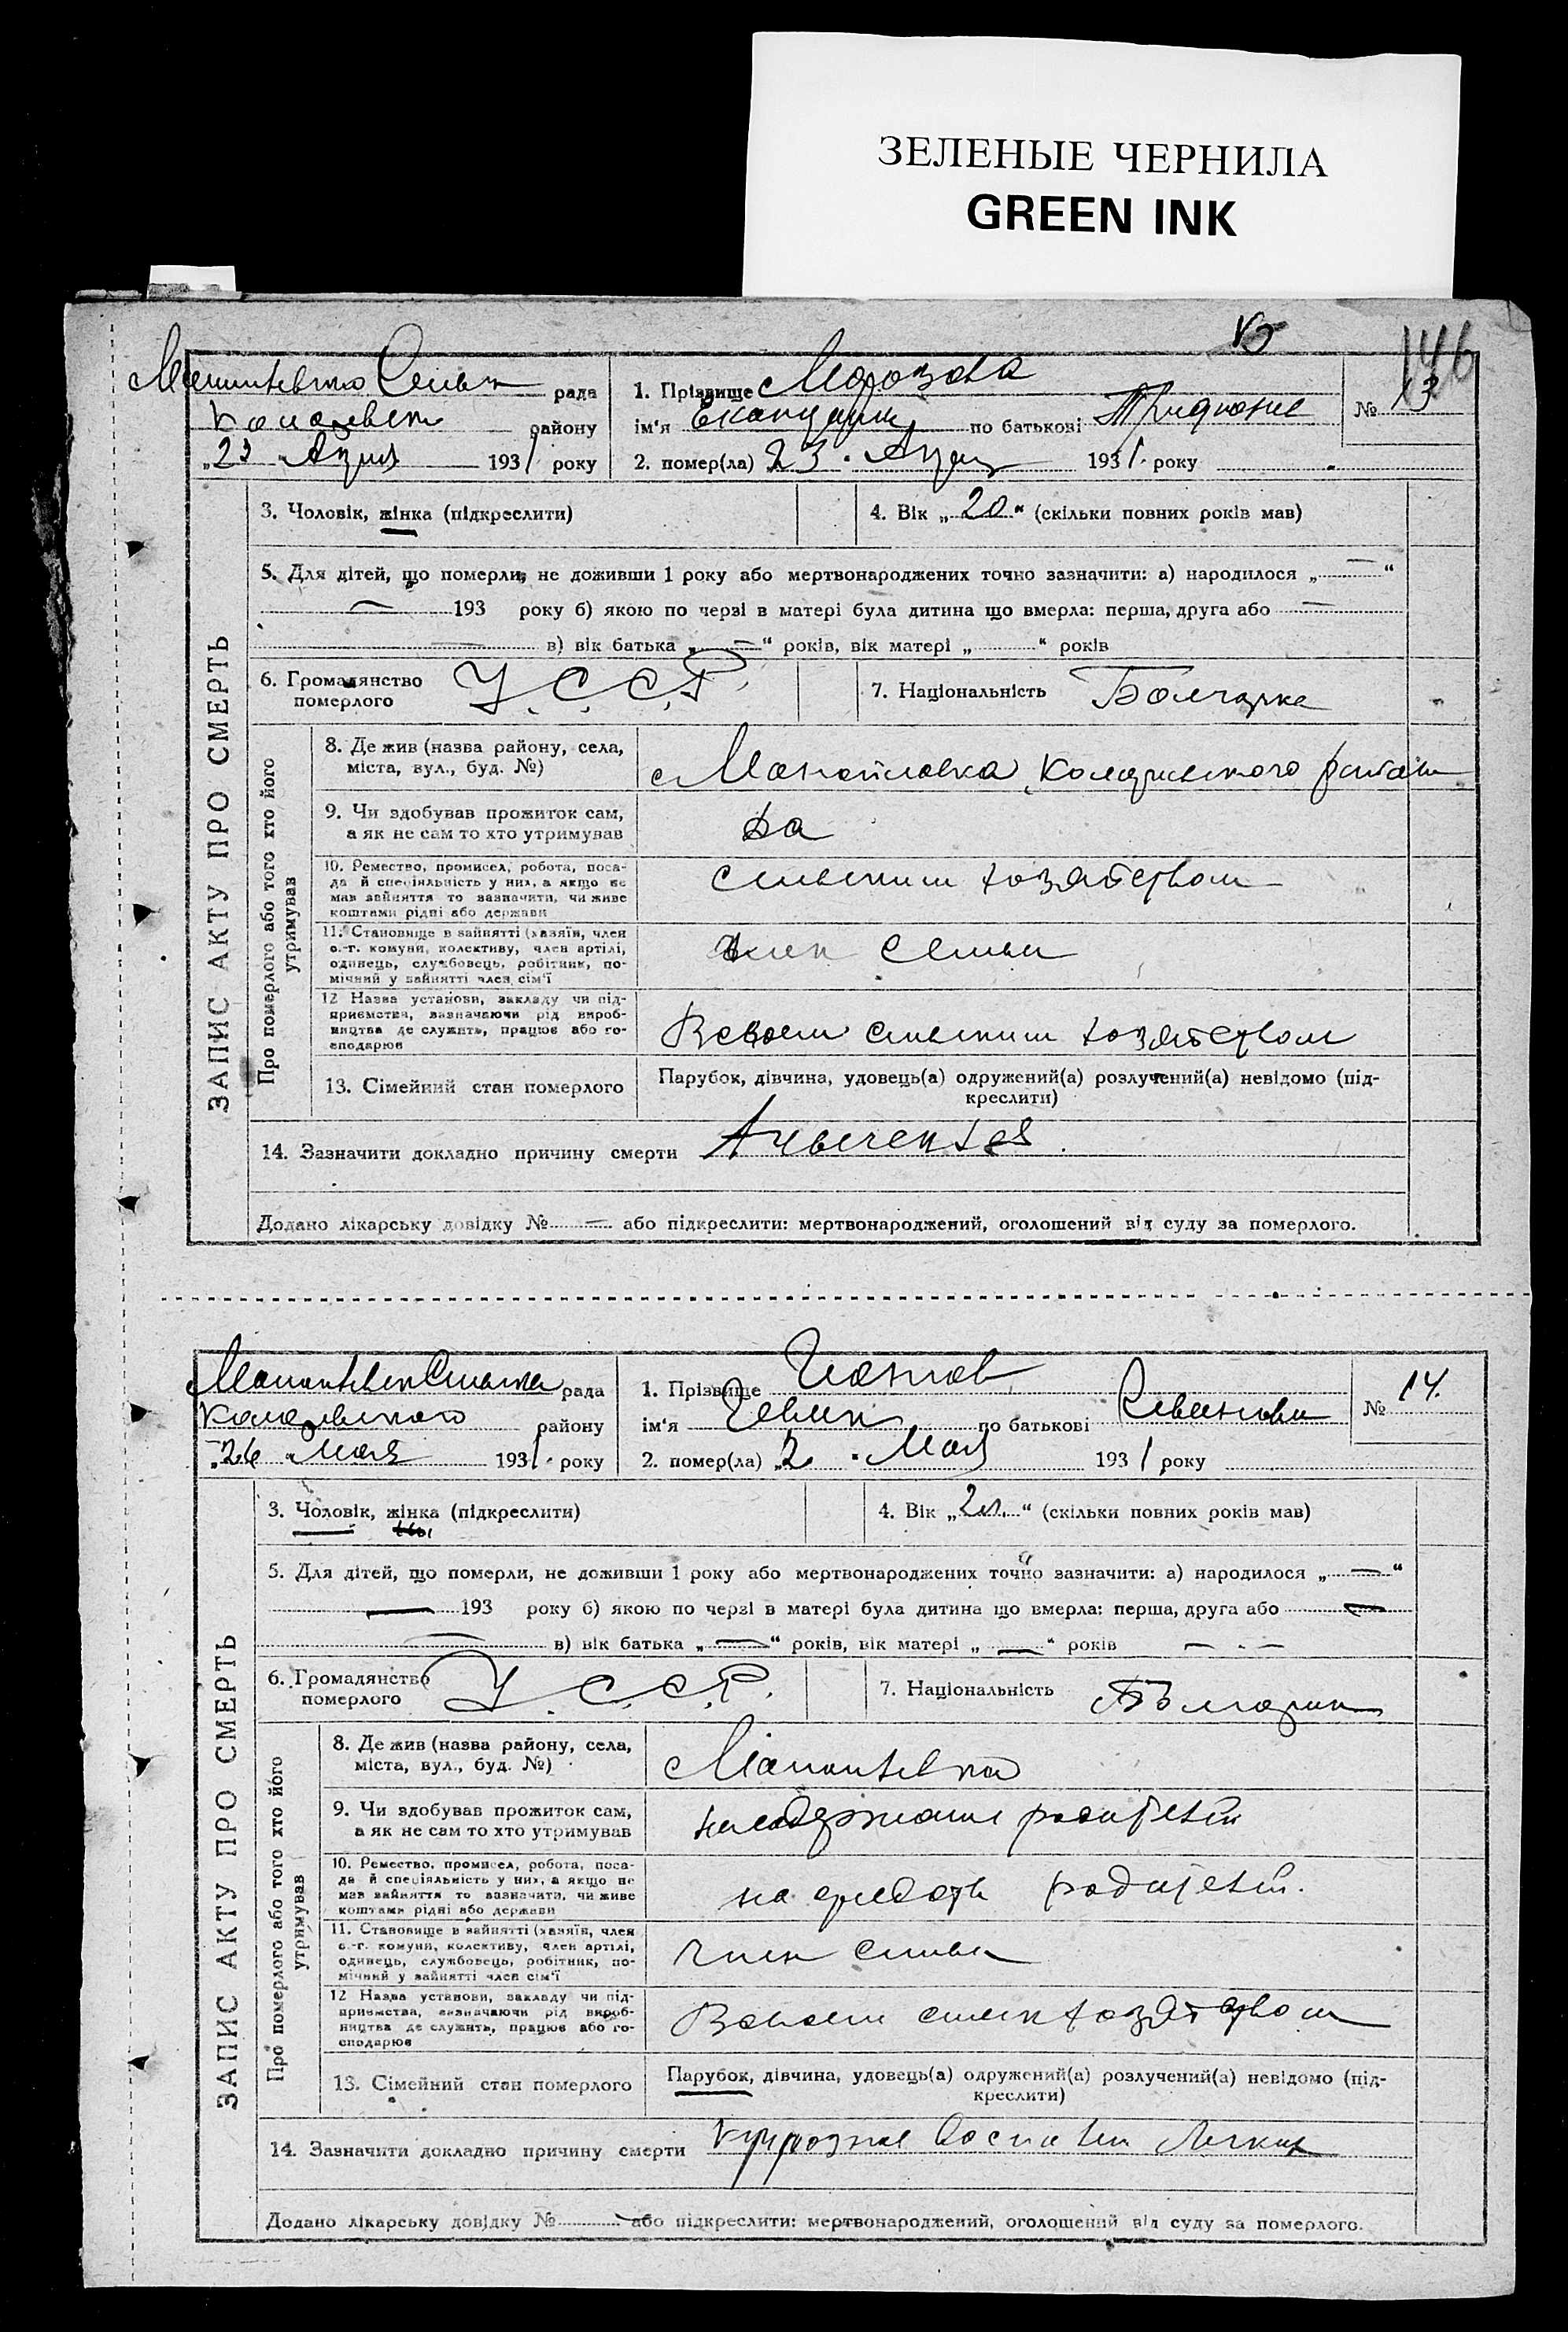 ЗЕЛЕНЫЕ ЧЕРНИЛА
GREEN INK
146
рада
району
„23" 1931 року
1. Прізвище Морозова
ім'я по батькові
2. помер(ла) 23 1931 року
№ 13
ЗАПИС АКТУ ПРО СМЕРТЬ
3. Чоловік, жінка (підкреслити)
4. Вік „20" (скільки повних років мав)
5. Для дітей, що померли, не доживши 1 року або мертвонароджених точно зазначити: а) народилося „—"
— 193 року б) якою по черзі в матері була дитина що вмерла: перша, друга або —
— в) вік батька „—" років, вік матері „ " років
6. Громадянство
померлого
У.С.С.Р.
7. Національність Болгарка
Про померлого або того хто його
утримував
8. Де жив (назва району, села,
міста, вул., буд. №)
с
9. Чи здобував прожиток сам,
а як не сам то хто утримував
да
10. Ремество, промисел, робота, поса-
да й спеціяльність у них, а якщо не
мав зайняття то зазначити, чи живе
коштами рідні або держави
сельским хозяйством
11. Становище в зайнятті (хазяїн, член
с.-г. комуни, колективу, член артілі,
одинець, службовець, робітник, по-
мічний у зайнятті член сім'ї
член семьи
12 Назва установи, закладу чи під-
приємства, зазначаючи рід вироб-
ництва де служить, працює або го-
сподарює
сельским хозяйством
13. Сімейний стан померлого
Парубок, дівчина, удовець(а) одружений(а) розлучений(а) невідомо (під-
креслити)
14. Зазначити докладно причину смерти
Додано лікарську довідку № — або підкреслити: мертвонароджений, оголошений від суду за померлого.
рада
району
„26" Мая 1931 року
1. Прізвище
ім'я по батькові
2. помер(ла) „2" Мая 1931 року
№ 14.
ЗАПИС АКТУ ПРО СМЕРТЬ
3. Чоловік, жінка (підкреслити)
4. Вік „ " (скільки повних років мав)
5. Для дітей, що померли, не доживши 1 року або мертвонароджених точно зазначити: а) народилося „—"
— 193 року б) якою по черзі в матері була дитина що вмерла: перша, друга або —
— в) вік батька „—" років, вік матері „—" років
6. Громадянство
померлого
У.С.С.Р.
7. Національність
Про померлого або того хто його
утримував
8. Де жив (назва району, села,
міста, вул., буд. №)
с
9. Чи здобував прожиток сам,
а як не сам то хто утримував
на содержании родителей
10. Ремество, промисел, робота, поса-
да й спеціяльність у них, а якщо не
мав зайняття то зазначити, чи живе
коштами рідні або держави
на родителей.
11. Становище в зайнятті (хазяїн, член
с.-г. комуни, колективу, член артілі,
одинець, службовець, робітник, по-
мічний у зайнятті член сім'ї
член семьи
12 Назва установи, закладу чи під-
приємства, зазначаючи рід вироб-
ництва де служить, працює або го-
сподарює
хозяйством
13. Сімейний стан померлого
Парубок, дівчина, удовець(а) одружений(а) розлучений(а) невідомо (під-
креслити)
14. Зазначити докладно причину смерти
Додано лікарську довідку № або підкреслити: мертвонароджений, оголошений від суду за померлого.